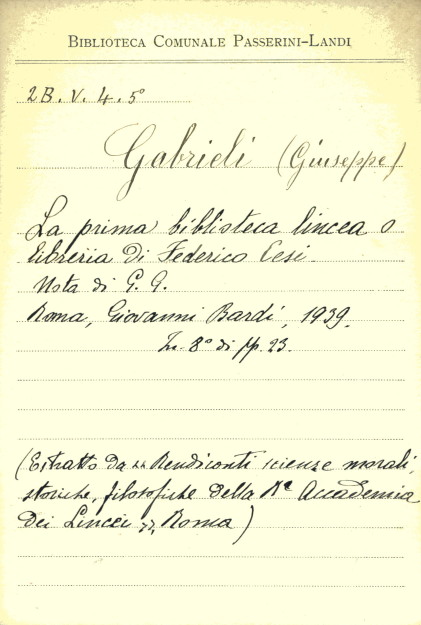 BIBLIOTECA COMUNALE PASSERINI-LANDI
2B. V. 4. 5°
Gabrieli (Giuseppe)
La prima biblioteca lincea o
libreria di Federico Cesi.
Nota di G. G.
Roma, Giovanni Bardi, 1939.
In 8° di pp. 23.
(Estratto da « Rendiconti scienze morali,
storiche, filosofiche della Rᵉ Accademia
dei Lincei », Roma)